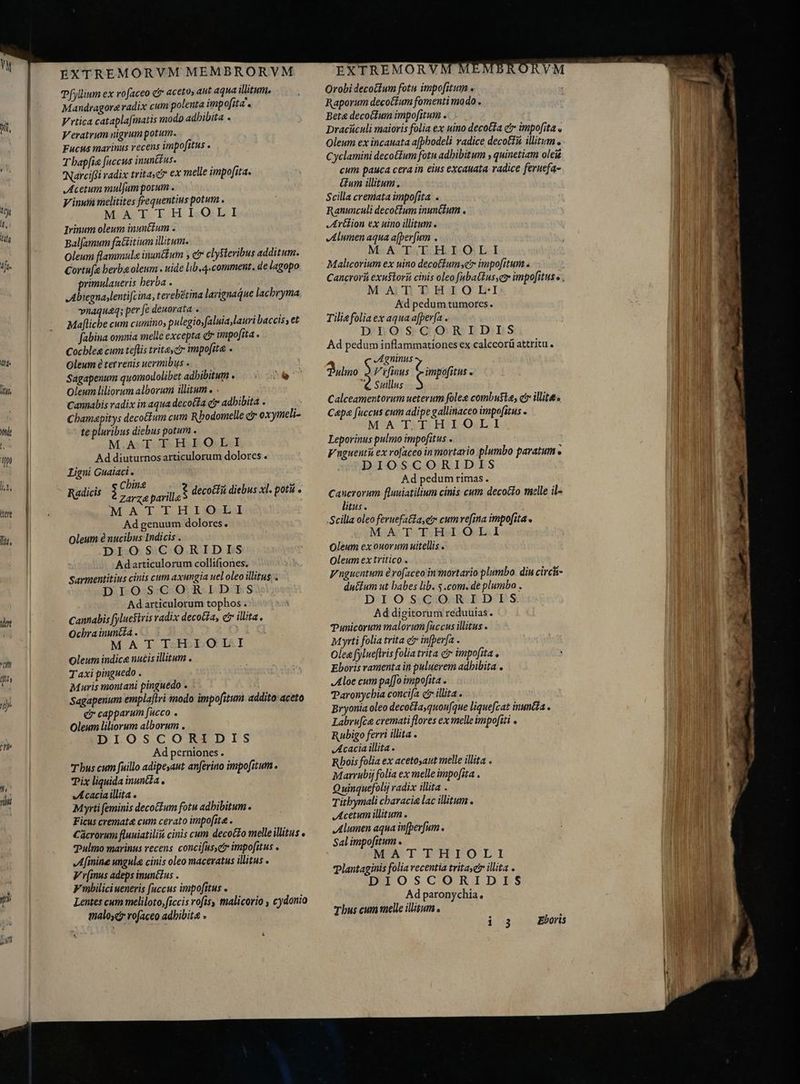 EXTREMORVM MEMBRORVM
Psyllium ex rosaceo & aceto, aut aqua illitum.
Mandragoræ radix cum polenta imposita.
Vrtica cataplasmatis modo adhibita.
Veratrum nigrum potum.
Fucus marinus recens impositus.
Thapsiæ succus inunctus.
Narcissi radix trita, & ex melle imposita.
Acetum mulsum potum.
Vinum melitites frequentius potum.
MATTHIOLI
Irinum oleum inunctum.
Balsamum factitium illitum.
Oleum flammulæ inunctum, & clysteribus additum.
Cortusæ herbæ oleum. uide lib.4.comment. de lagopo
primulaueris herba.
Abiegna, lentiscina, terebētina larignaque lachryma
vnaquæq; per se deuorata.
Mastiche cum cumino, pulegio, saluia, lauri baccis, et
sabina omnia melle excepta & imposita.
Cochleæ cum testis tritæ, & impositæ.
Oleum è terrenis uermibus.
Sagapenum quomodolibet adhibitum.
Oleum liliorum alborum illitum.
Cannabis radix in aqua decocta & adhibita.
Chamæpitys decoctum cum Rhodomelle & oxymeli-
te pluribus diebus potum.
MATTHIOLI
Ad diuturnos articulorum dolores.
Ligni Guaiaci.
Radicis { Chinæ
Zarzæ parillæ } decoctū diebus xl. potū.
MATTHIOLI
Ad genuum dolores.
Oleum è nucibus Indicis.
DIOSCORIDIS
Ad articulorum collisiones.
Sarmentitius cinis cum axungia uel oleo illitus.
DIOSCORIDIS
Ad articulorum tophos.
Cannabis syluestris radix decocta, & illita.
Ochra inuncta.
MATTHIOLI
Oleum indicæ nucis illitum.
Taxi pinguedo.
Muris montani pinguedo.
Sagapenum emplastri modo impositum addito aceto
& capparum succo.
Oleum liliorum alborum.
DIOSCORIDIS
Ad perniones.
Thus cum suillo adipe, aut anserino impositum.
Pix liquida inuncta.
Acacia illita.
Myrti feminis decoctum fotu adhibitum.
Ficus crematæ cum cerato impositæ.
Cācrorum fluuiatiliū cinis cum decocto melle illitus.
Pulmo marinus recens concisus, & impositus.
Asininæ ungulæ cinis oleo maceratus illitus.
Vrsinus adeps inunctus.
Vmbilici ueneris succus impositus.
Lentes cum meliloto, siccis rosis, malicorio, cydonio
malo, & rosaceo adhibitæ.
EXTREMORVM MEMBRORVM
Orobi decoctum fotu impositum.
Raporum decoctum fomenti modo.
Betæ decoctum impositum.
Dracūculi maioris folia ex uino decocta & imposita.
Oleum ex incauata asphodeli radice decoctū illitum.
Cyclamini decoctum fotu adhibitum, quinetiam oleū
cum pauca cera in eius excauata radice feruefa-
ctum illitum.
Scilla cremata imposita.
Ranunculi decoctum inunctum.
Arction ex uino illitum.
Alumen aqua aspersum.
MATTHIOLI
Malicorium ex uino decoctum, & impositum.
Cancrorū exustorū cinis oleo subactus, & impositus.
MATTHIOLI
Ad pedum tumores.
Tiliæ folia ex aqua aspersa.
DIOSCORIDIS
Ad pedum inflammationes ex calceorū attritu.
Pulmo { Agninus
Vrsinus
Suillus } impositus.
Calceamentorum ueterum soleæ combustæ, & illitæ.
Cepæ succus cum adipe gallinaceo impositus.
MATTHIOLI
Leporinus pulmo impositus.
Vnguentū ex rosaceo in mortario plumbo paratum.
DIOSCORIDIS
Ad pedum rimas.
Cancrorum fluuiatilium cinis cum decocto melle il-
litus.
Scilla oleo feruefacta, & cum resina imposita.
MATTHIOLI
Oleum ex ouorum uitellis.
Oleum ex tritico.
Vnguentum è rosaceo in mortario plumbo diu circū-
ductum ut habes lib. 5.com. de plumbo.
DIOSCORIDIS
Ad digitorum reduuias.
Punicorum malorum succus illitus.
Myrti folia trita & inspersa.
Oleæ syluestris folia trita & imposita.
Eboris ramenta in puluerem adhibita.
Aloe cum passo imposita.
Paronychia concisa & illita.
Bryonia oleo decocta, quousque liquescat inuncta.
Labruscæ cremati flores ex melle impositi.
Rubigo ferri illita.
Acacia illita.
Rhois folia ex aceto, aut melle illita.
Marrubij folia ex melle imposita.
Quinquefolij radix illita.
Tithymali characiæ lac illitum.
Acetum illitum.
Alumen aqua inspersum.
Sal impositum.
MATTHIOLI
Plantaginis folia recentia trita, & illita.
DIOSCORIDIS
Ad paronychia.
Thus cum melle illitum.
i 3 Eboris